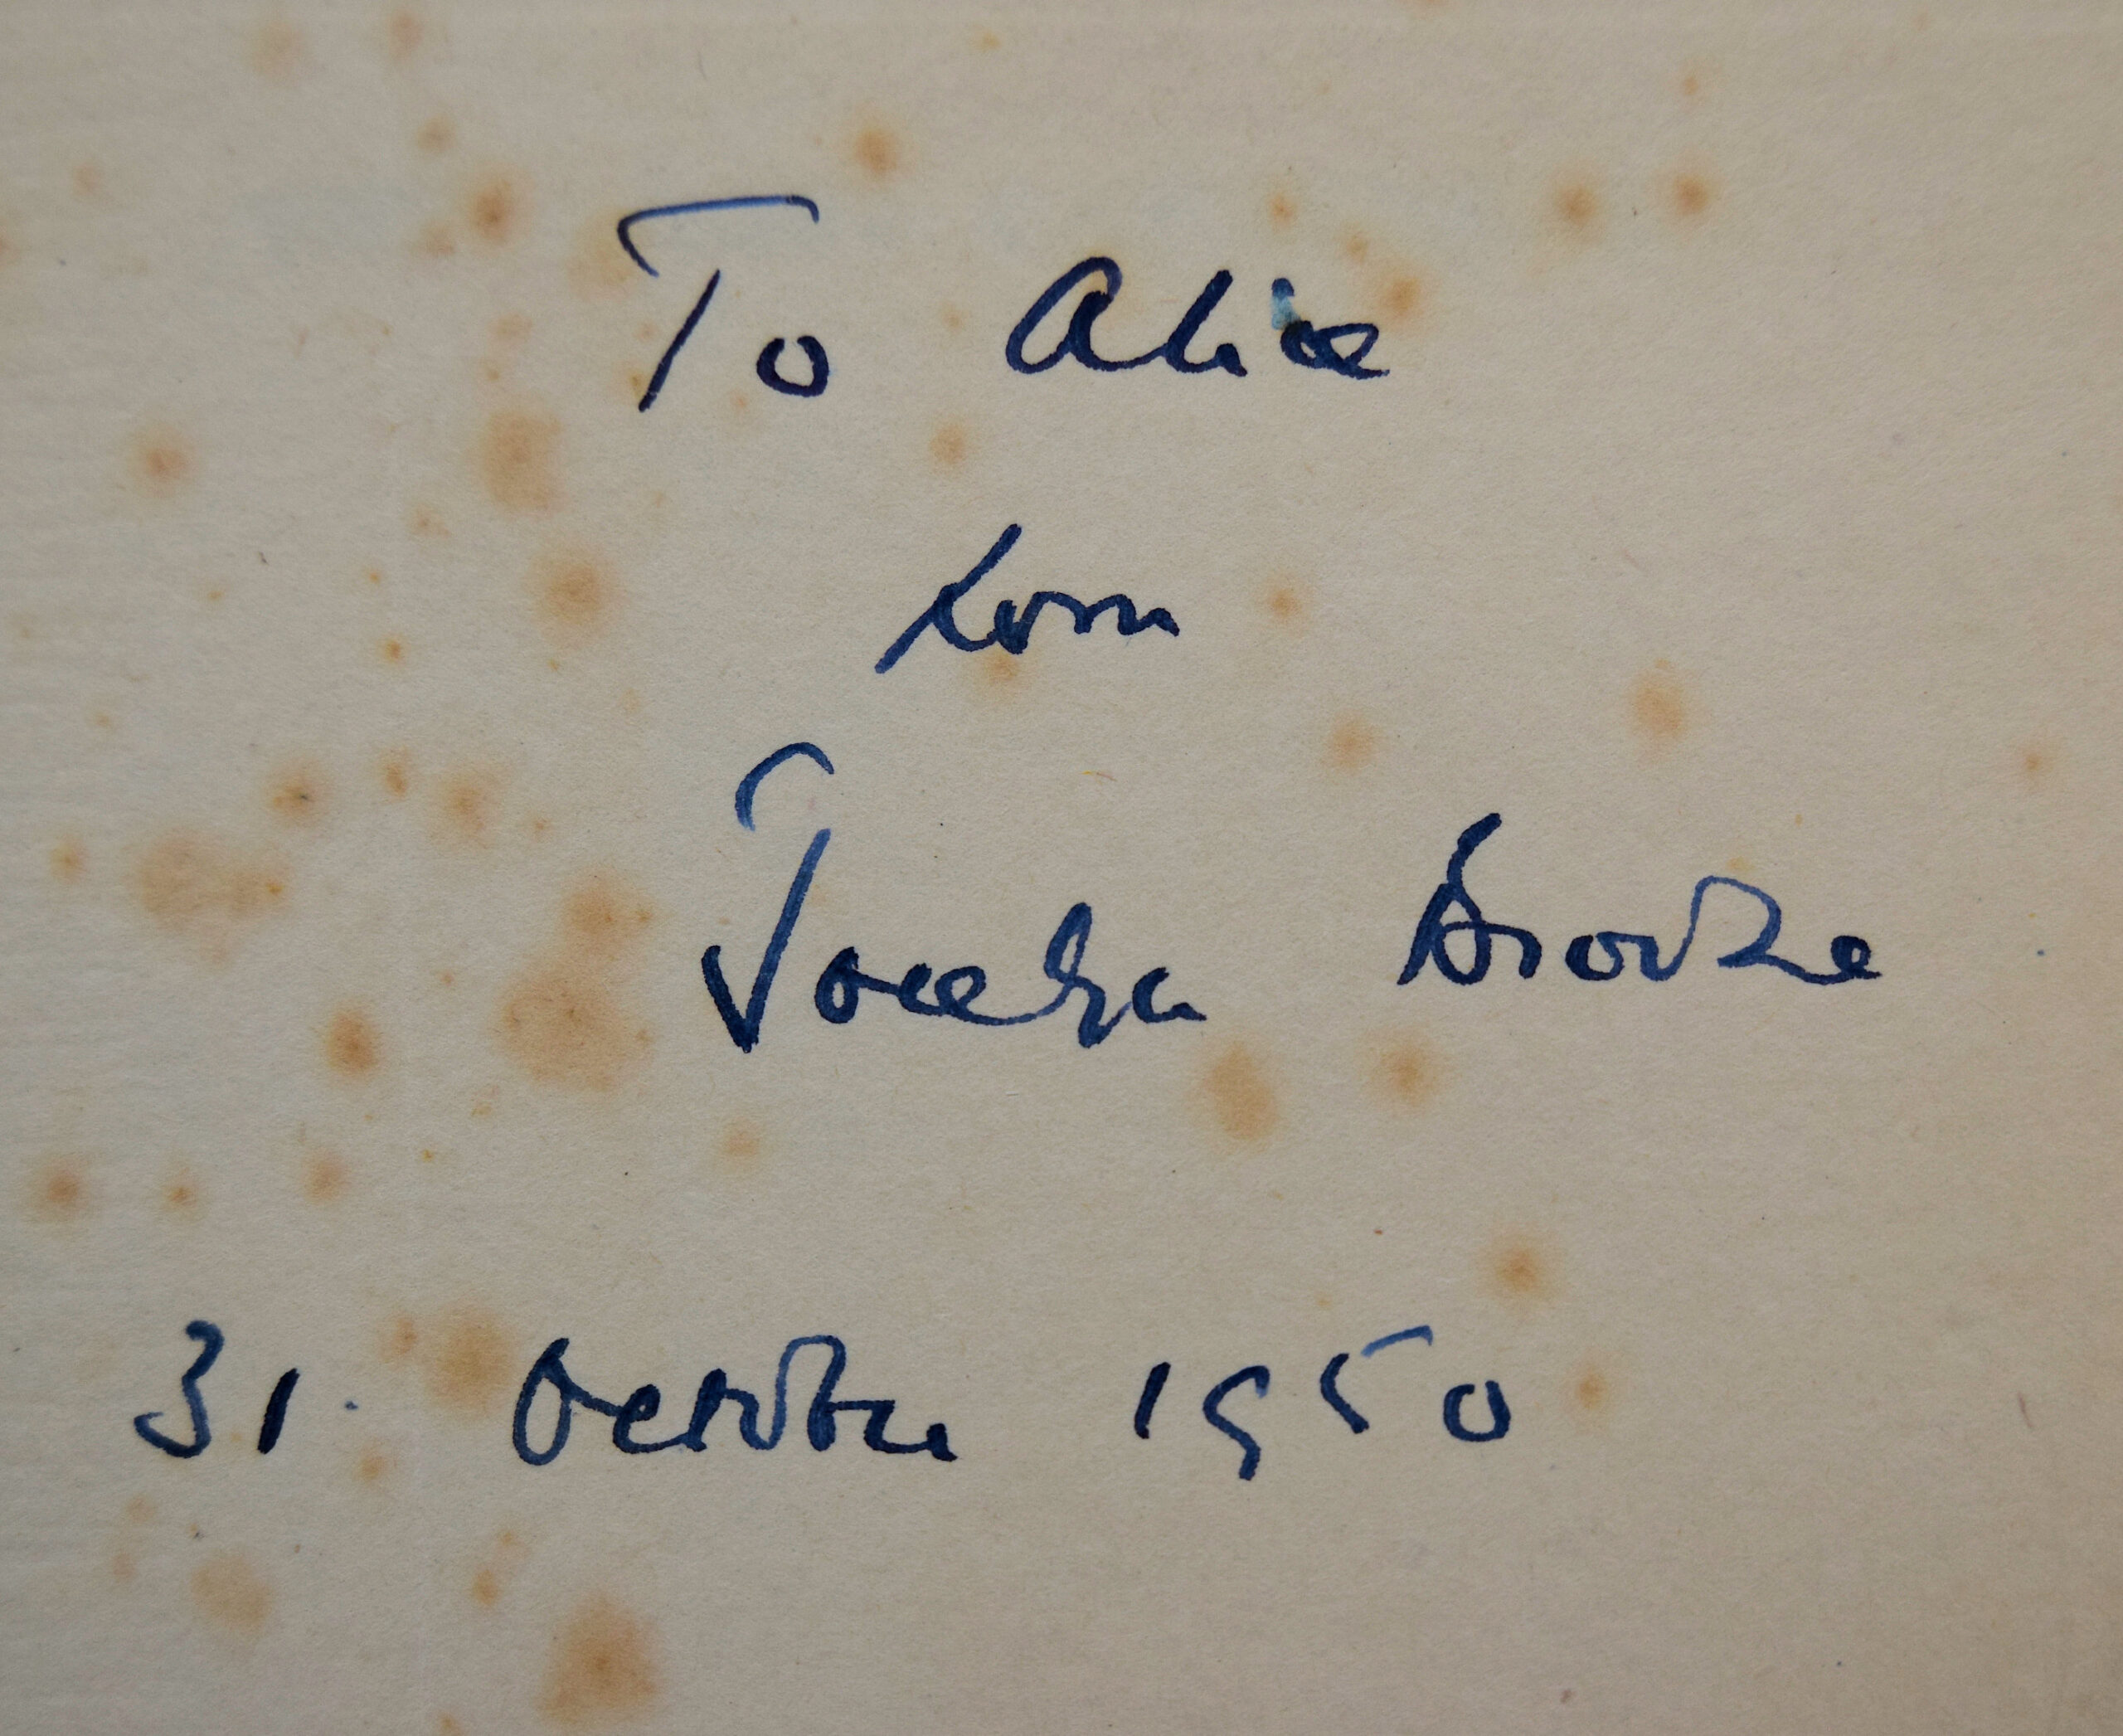 To Alice
from
Jocelyn Brooke
31. October 1950